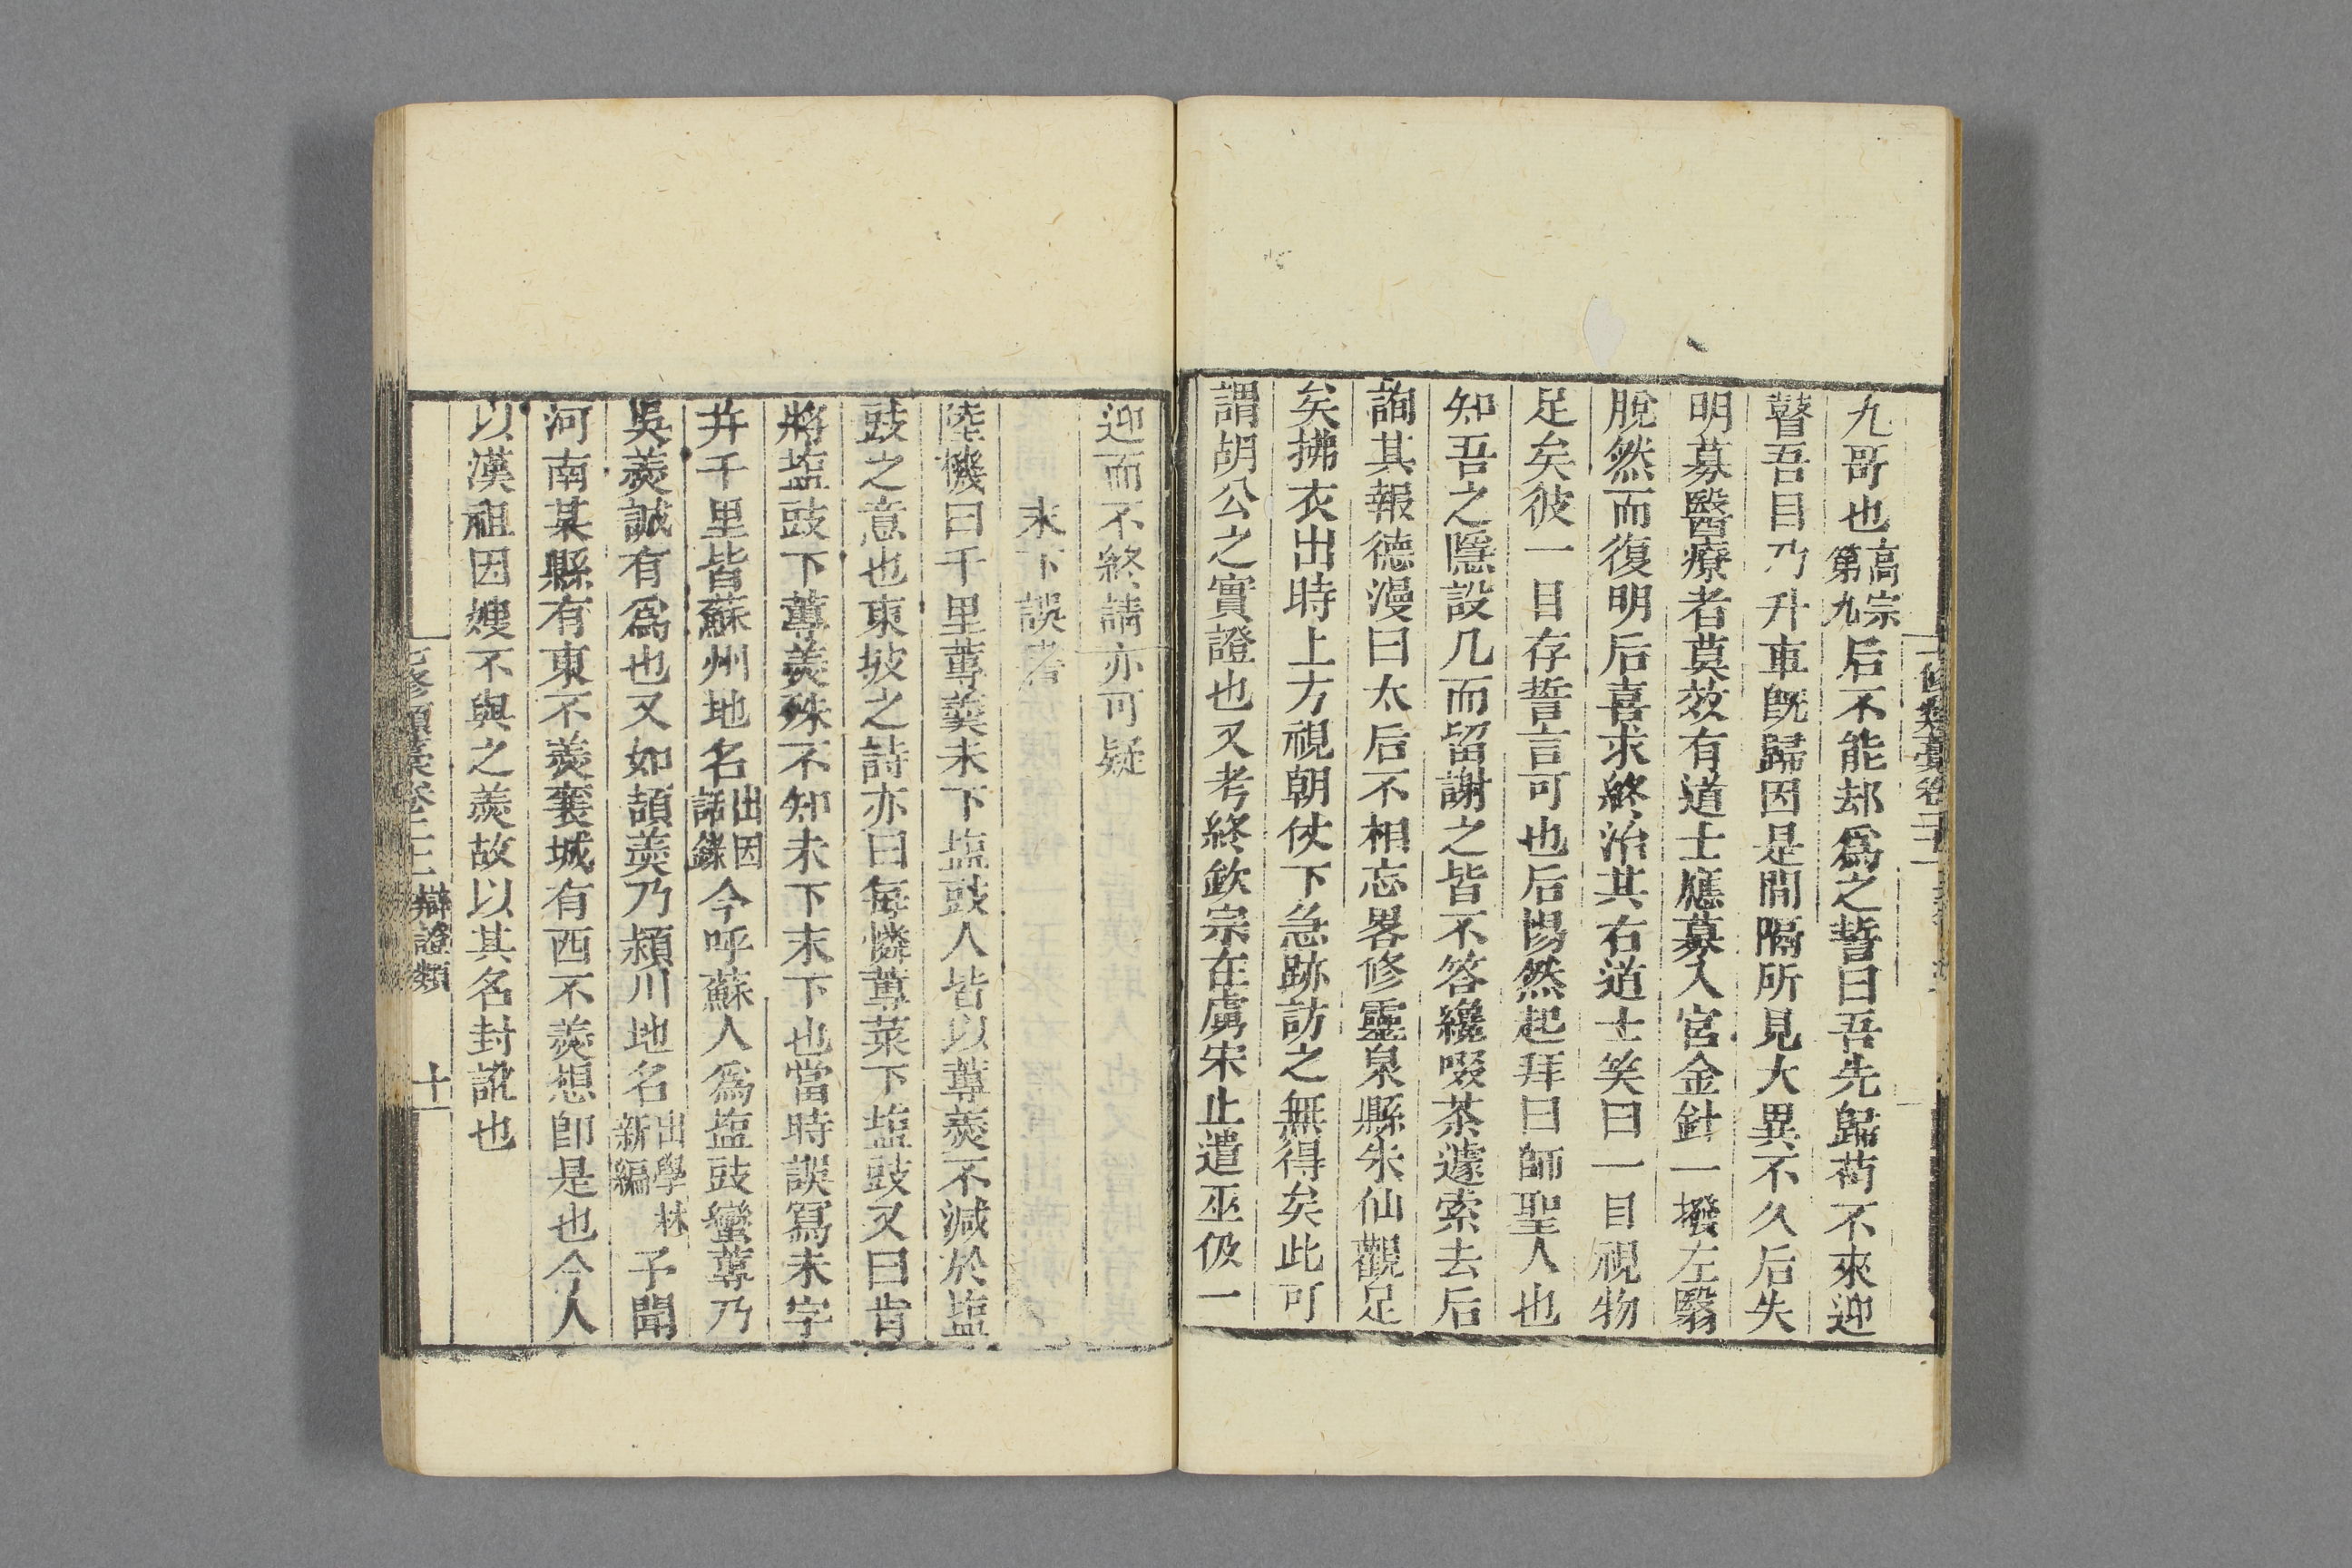 九哥也高宗第九后不能却爲之誓曰吾先歸苟不來迎
瞽吾目乃升車旣歸因是間隔所見大異不久后失
明募醫療者莫效有道士應募入宮金針一撥左翳
脫然而復明后喜求終治其右道士笑曰一目視物
足矣彼一目存誓言可也后惕然起拜曰師聖人也
知吾之隱設几而留謝之皆不答纔啜茶遽索去后
詢其報德漫曰太后不相忘畧修靈泉縣朱仙觀足
矣拂衣出時上方視朝仗下急跡訪之無得矣此可
謂胡公之實證也又考終欽宗在虜宋止遣巫伋一
迎而不終請亦可疑
末下誤者
陸機曰千里蓴羹未下塩豉人皆以蓴羹不減於塩
豉之意也東坡之詩亦曰每憐蓴菜下塩豉又曰肯
將塩豉下蓴羹殊不知未下末下也當時誤寫未字
并千里皆蘇州地名出因話錄今呼蘇人爲塩豉蠻蓴乃
吳羹誠有爲也又如頡羹乃潁川地名出學林新編予聞
河南某縣有東不羹襄城有西不羹想卽是也今人
以漢祖因嫂不與之羹故以其名封訛也
七修類稾卷二十二 辯證類 十